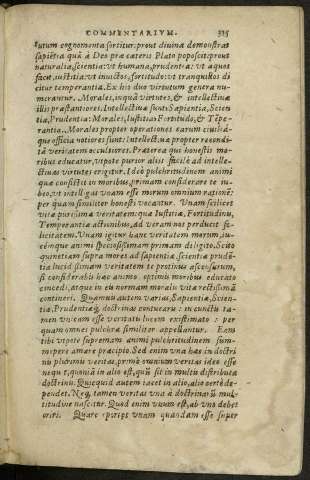 COMMENTARIVM. 325
utum cognomenta sortitur: prout diuina demonstrat
sapiẽtia quā à Deo præ cæteris Plato poposcit: prout
naturalia, scientia: vt humana, prudentia: vt æquos
facit, iustitia: vt inuictos, fortitudo: vt tranquillos di
citur temperantia. Ex his duo virtutum genera nu-
merantur. Morales, inquā virtutes, & intellectiuæ
illis præstantiores. Intellectiuæ sunt: Sapientia, Scien
tia, Prudentia: Morales, Iustitia, Fortitudo, & Tēpe-
rantia. Morales propter operationes earum ciuiliā-
que officia notiores sunt: Intellectiuæ propter recondi-
tā veritatem occultiores. Præterea qui honestis mo-
ribus educatur, vtpote purior alijs facilè ad intelle-
ctiuas virtutes erigitur. Ideò pulchritudinem animi
quæ consistit in moribus, primam considerare te iu-
beo, vt intelligas vnam esse morum omnium rationē:
per quam similiter honesti vocantur. Vnam scilicet
vitæ purissimæ veritatem: quæ Iustitiæ, Fortitudinis,
Temperantiæ actionibus, ad veram nos perducit fe-
licitatem. Vnam igitur hanc veritatem morum, lu-
cémque animi speciosissimam primam diligito. Scito
quinetiam supra mores ad sapientiæ scientiæ prudēn
tiæ lucidissimam veritatem te protinus ascensurum,
si consideraris hæc animo optimis moribus educato
concedi, atque in eis normam moralis vitæ rectissimā
contineri. Quamuis autem varias, Sapientiæ, Scien-
tiæ, Prudentiæq́; doctrinas intueare: in cunctis ta-
men vnicam esse veritatis lucem existimato: per
quam omnes pulchræ similiter appellantur. Eam
tibi vtpote supremam animi pulchritudinem sum-
mopere amare præcipio. Sed enim vna hæc in doctri
nis plurimis veritas, prima omnium veritas ideo esse
nequit, quoniā in alio est, quū sit in multis distributa
doctrinis. Quicquid autem iacet in alio, alio certè de-
pendet. Neq; tamen veritas vna à doctrinarū mul-
titudine nascitur. Quod enim vnum est, ab vno debet
oriri. Quare vnam quandam esse super